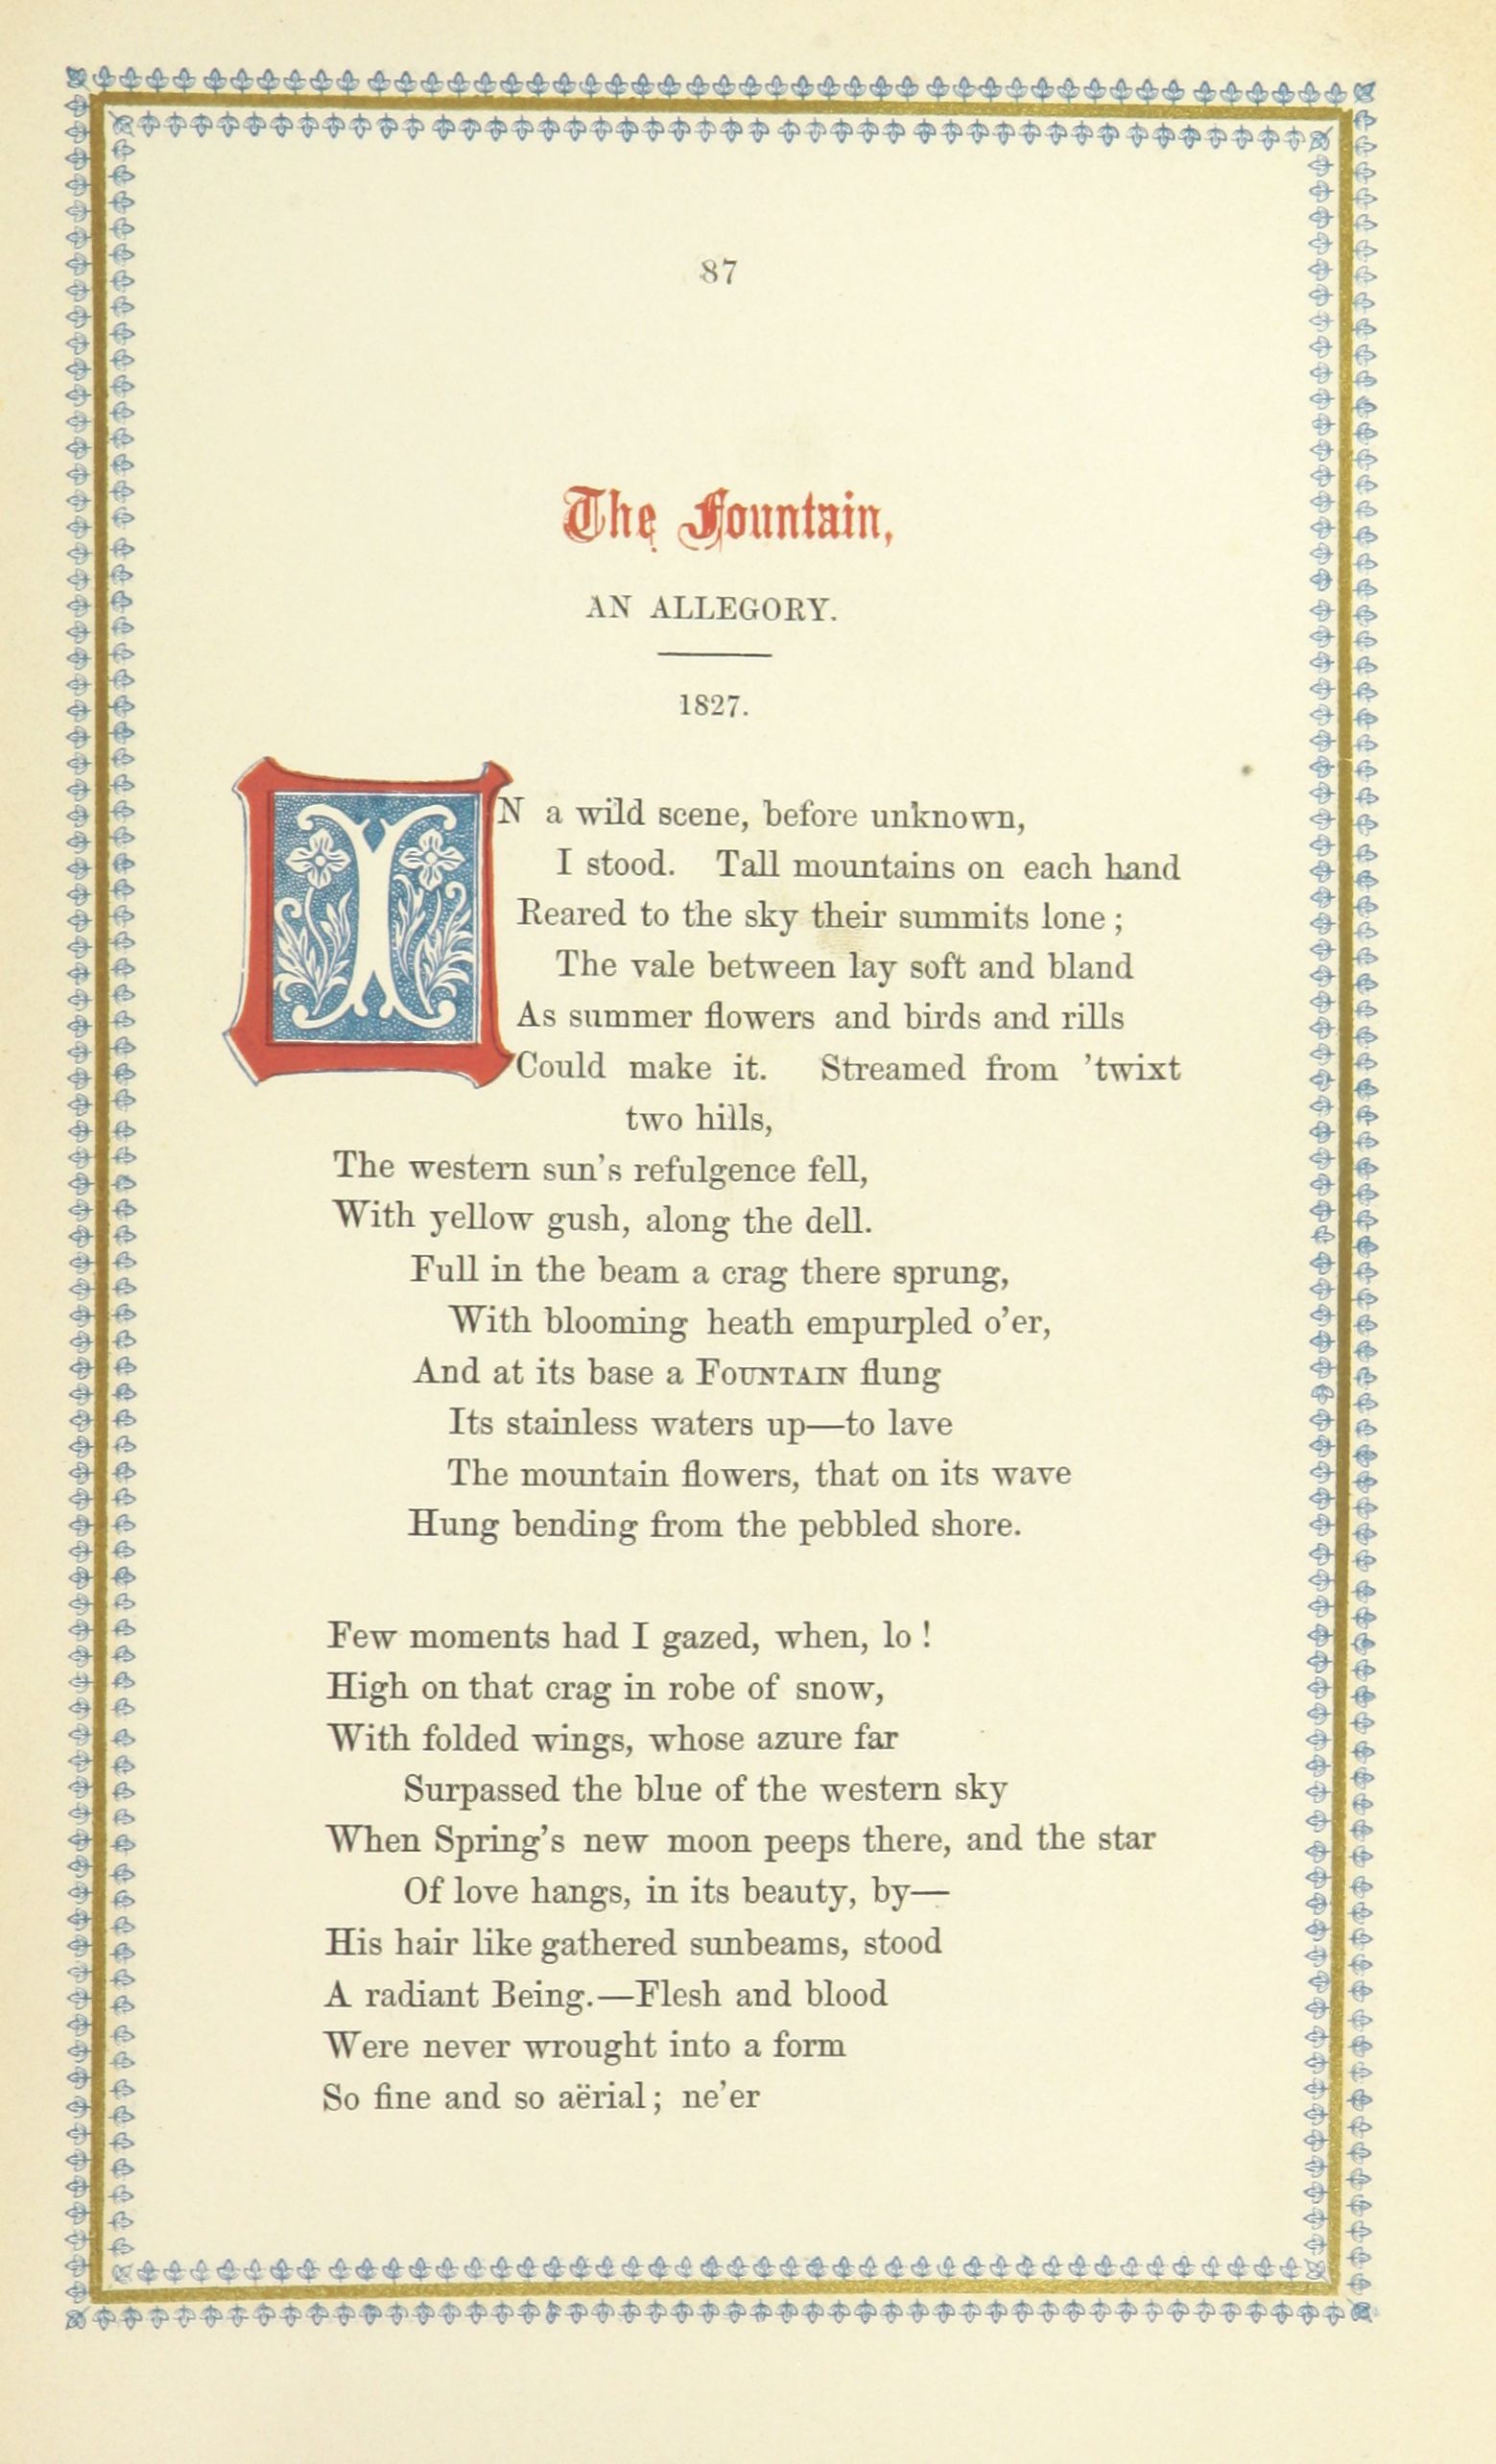 87
The Fountain,
AN ALLEGORY.
1827.
IN a wild scene, before unknown,
I stood. Tall mountains on each hand
Reared to the sky their summits lone ;
The vale between lay soft and bland
As summer flowers and birds and rills
Could make it. Streamed from ’twixt
two hills,
The western sun’s refulgence fell,
With yellow gush, along the dell.
Full in the beam a crag there sprung,
With blooming heath empurpled o’er,
And at its base a FOUNTAIN flung
Its stainless waters up—to lave
The mountain flowers, that on its wave
Hung bending from the pebbled shore.
Few moments had I gazed, when, lo !
High on that crag in robe of snow,
With folded wings, whose azure far
Surpassed the blue of the western sky
When Spring’s new moon peeps there, and the star
Of love hangs, in its beauty, by—
His hair like gathered sunbeams, stood
A radiant Being.—Flesh and blood
Were never wrought into a form
So fine and so aërial ; ne’er